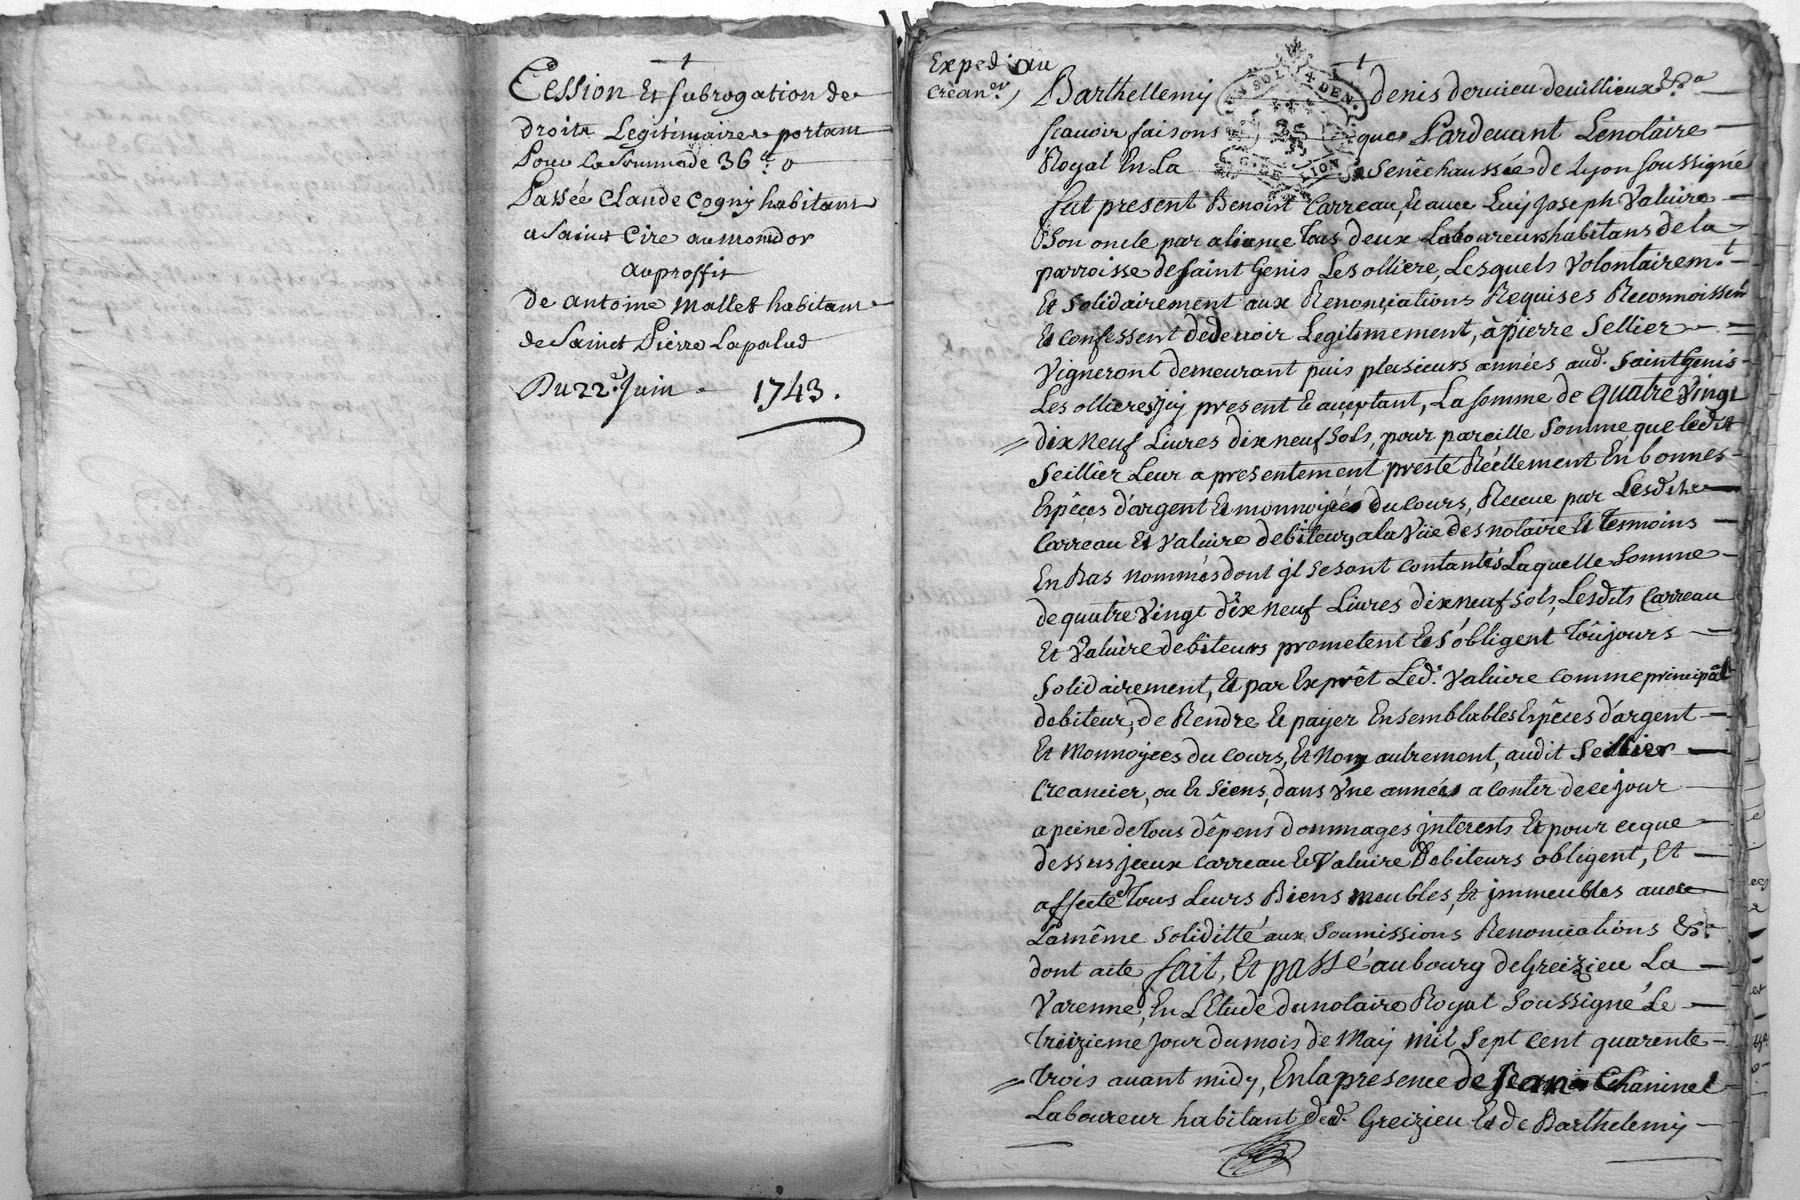 Cession Et subrogation de
droits Legitimaires portant
Pour la Somme de 36 lt 0
Passée Claude Cogny habitant
a Saint Cire au mondor
au proffit
de antoine Mallet habitant
de Saint Pierre Lapalud
Du 22e Juin 1743.
Exped. au
Crean.er
Barthellemy denis dervieu de villieux &a
scavoir faisons que Pardevant Lenotaire
Royal En La Sénéchaussée de Lyon soussigné
fut present Benoist Carreau, Et avec Luy Joseph Valuire
Son oncle par aliance Tous deux Laboureurs habitans de la
parroisse de saint Genis Les ollieres, Lesquels volontairem.t
Et Solidairement aux Renonciations Requises Reconnoissent
Et confessent de devoir Legitimement, à pierre Sellier
Vigneront demeurant puis plusieurs années aud. Saint Genis
Les ollieres jcy present Et acceptant, La somme de quatre vingt
dix Neuf Livres dix neuf sols, pour pareille Somme que ledit
Seillier Leur a presentement presté Réellement En bonnes
Espêces d'argent Et monnoyées du cours, Receue par Lesdits
Carreau Et Valuire debiteurs, a la Vüe des notaire Et Temoins
En Bas nommés dont jl se sont contantés Laquelle Somme
de quatre vingt dix Neuf Livres dix neuf sols, Lesdits Carreau
Et Valuire debiteurs prometent Et s'obligent Toûjours
Solidairement, Et par Exprêt Led. Valuire comme principal
debiteur, de Rendre Et payer En semblables Espêces d'argent
Et Monnoyées du cours, Et Non autrement, audit Sellier
Creancier, ou Es Siens, dans Vne année a Conter de ce jour
a peine de Tous dêpens dommages jnterests Et pour ce que
dessus jceux Carreau Et Valuire Debiteurs obligent, Et
affecte Tous Leurs Biens meubles, Et jmmeubles avec
La même Soliditté aux Soumissions Renonciations &a
dont acte fait, Et passé au bourg de Greizieu La
Varenne, En L'Etude du notaire Royal Soussigné Le
Treizieme Jour du mois de May mil Sept cent quarente
Trois avant midy, En la presence de Jean Chaninel
Laboureur habitant dud. Greizieu Et de Barthelemy